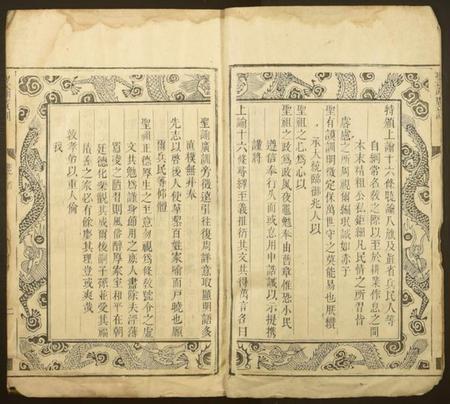 特頒上諭十六條曉諭八旗及直省兵民人等
自綱常名教之際以至於耕桑作息之間
本末精粗公私鉅細凡民情之所習皆
睿慮之所周視爾編氓誠如赤子
聖有謨訓明徵定保萬世守之莫能易也朕纘
承大統臨御兆人以
聖祖之心為心以
聖祖之政為政夙夜黽勉率由舊章惟恐小民
遵信奉行久而或怠用申誥誡以示提撕
謹將
上諭十六條尋繹其義推衍其文共得萬言名曰
聖諭廣訓旁徵遠引往復周詳意取顯明語多
直樸無非奉
先志以啟後人使羣黎百姓家喻而戶曉也願
爾兵民等仰體
聖祖正德厚生之至意勿視為條教號令之虛
文共勉為謹身節用之庶人盡除夫浮薄
囂凌之陋習則風俗醇厚室家和平在朝
廷德化樂觀其成爾後嗣子孫並受其福
積善之家必有餘慶其理豈或爽哉
敦孝弟以重人倫